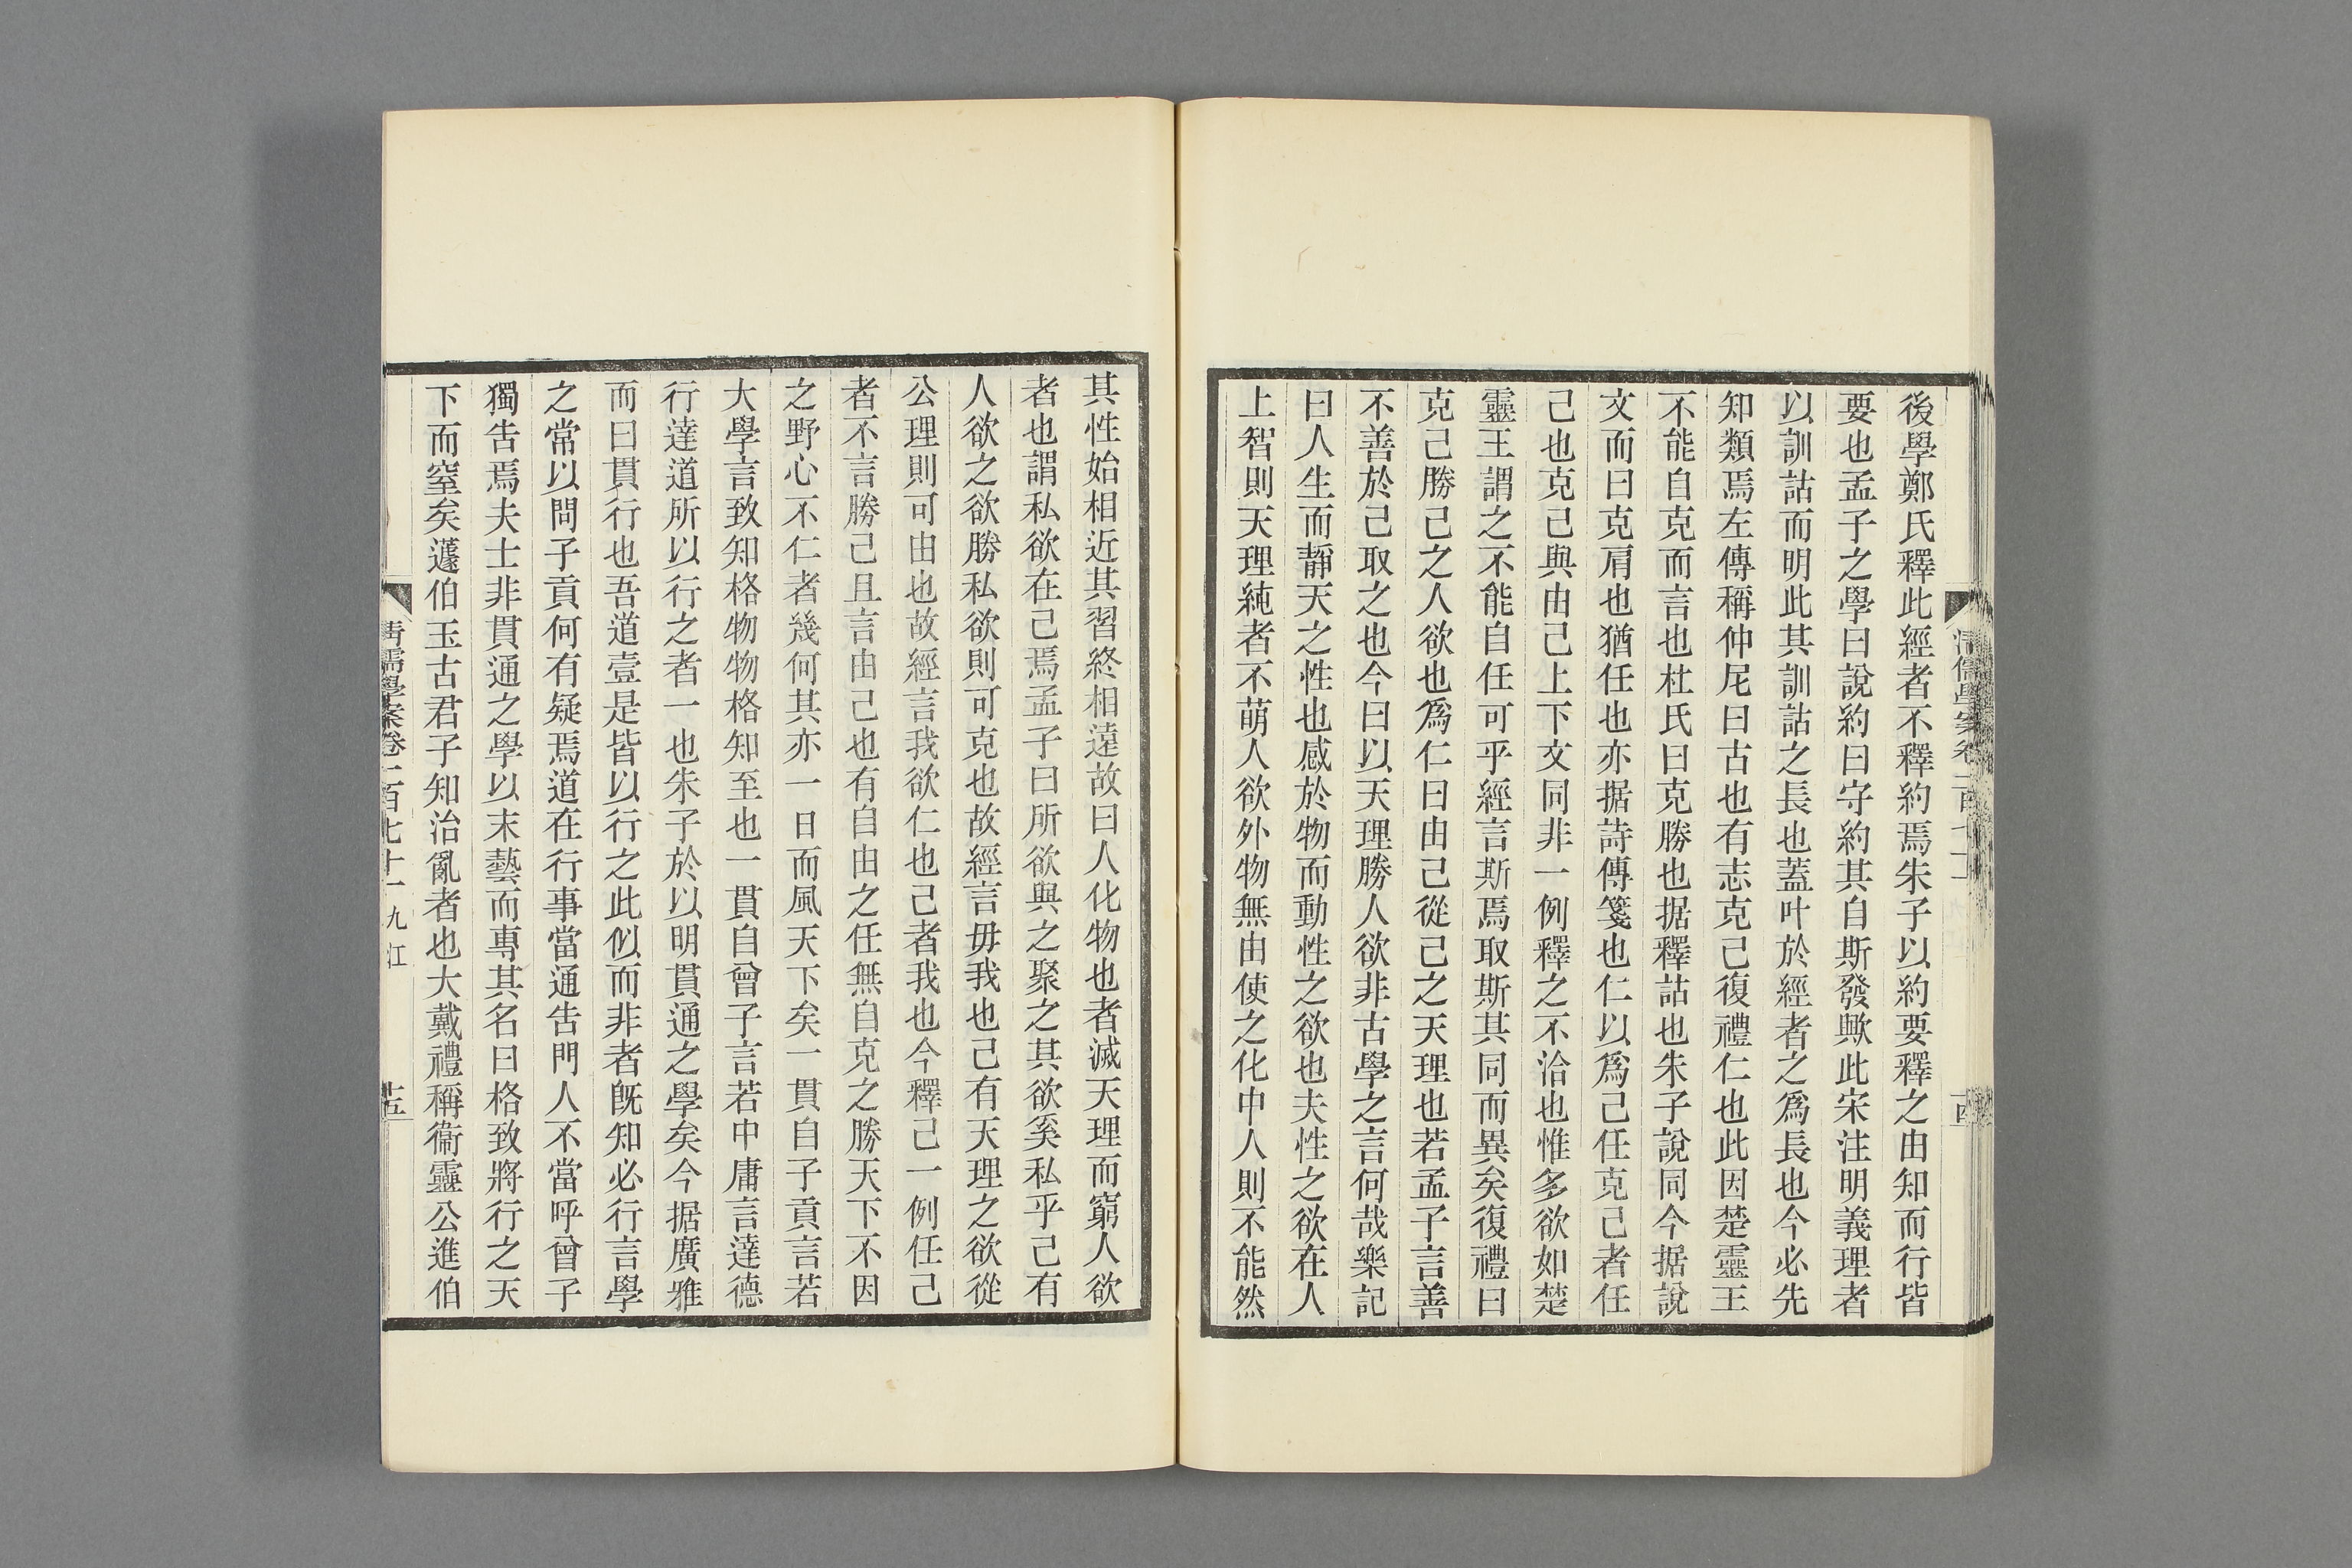 後學鄭氏釋此經者不釋約焉朱子以約要釋之由知而行皆
要也孟子之學曰說約曰守約其自斯發歟此宋注明義理者
以訓詁而明此其訓詁之長也蓋叶於經者之爲長也今必先
知類焉左傳稱仲尼曰古也有志克己復禮仁也此因楚靈王
不能自克而言也杜氏曰克勝也据釋詁也朱子說同今据說
文而曰克肩也猶任也亦据詩傳箋也仁以爲己任克己者任
己也克己與由己上下文同非一例釋之不洽也惟多欲如楚
靈王謂之不能自任可乎經言斯焉取斯其同而異矣復禮曰
克己勝己之人欲也爲仁曰由己從己之天理也若孟子言善
不善於己取之也今曰以天理勝人欲非古學之言何哉樂記
曰人生而靜天之性也感於物而動性之欲也夫性之欲在人
上智則天理純者不萌人欲外物無由使之化中人則不能然
其性始相近其習終相遠故曰人化物也者滅天理而窮人欲
者也謂私欲在己焉孟子曰所欲與之聚之其欲奚私乎己有
人欲之欲勝私欲則可克也故經言毋我也己有天理之欲從
公理則可由也故經言我欲仁也己者我也今釋己一例任己
者不言勝己且言由己也有自由之任無自克之勝天下不因
之野心不仁者幾何其亦一日而風天下矣一貫自子貢言若
大學言致知格物物格知至也一貫自曾子言若中庸言達德
行達道所以行之者一也朱子於以明貫通之學矣今据廣雅
而曰貫行也吾道壹是皆以行之此似而非者既知必行言學
之常以問子貢何有疑焉道在行事當通告門人不當呼曾子
獨告焉夫士非貫通之學以末藝而專其名曰格致將行之天
下而窒矣蘧伯玉古君子知治亂者也大戴禮稱衞靈公進伯
清儒學案卷一百七十一 九江
十五